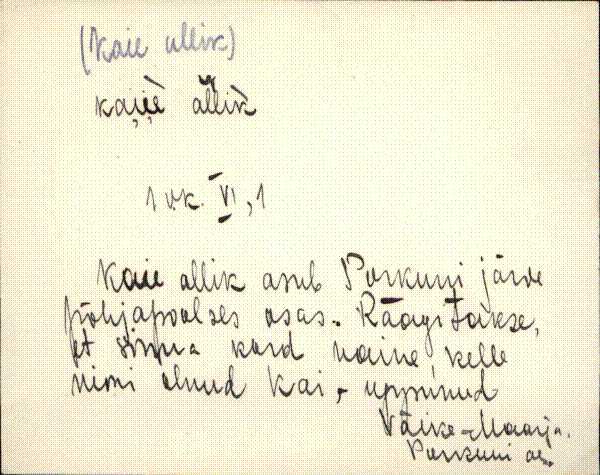 (Kaie allik)
kaiiè ällik̀
1 v.k. VI, 1
Kaie allik asub Porkuni järve
põhjapoolses osas. Räägitakse,
et sinna kord naine, kelle
nimi olnud Kai, - uppunud
Väike-Maarja.
Porkuni as.